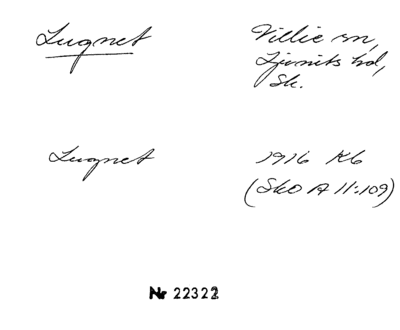 Lugnet
Villie sn,
Ljunits hd,
Sk.
Lugnet
1916 Kb
(SkO A 11:109)
Nr 22322